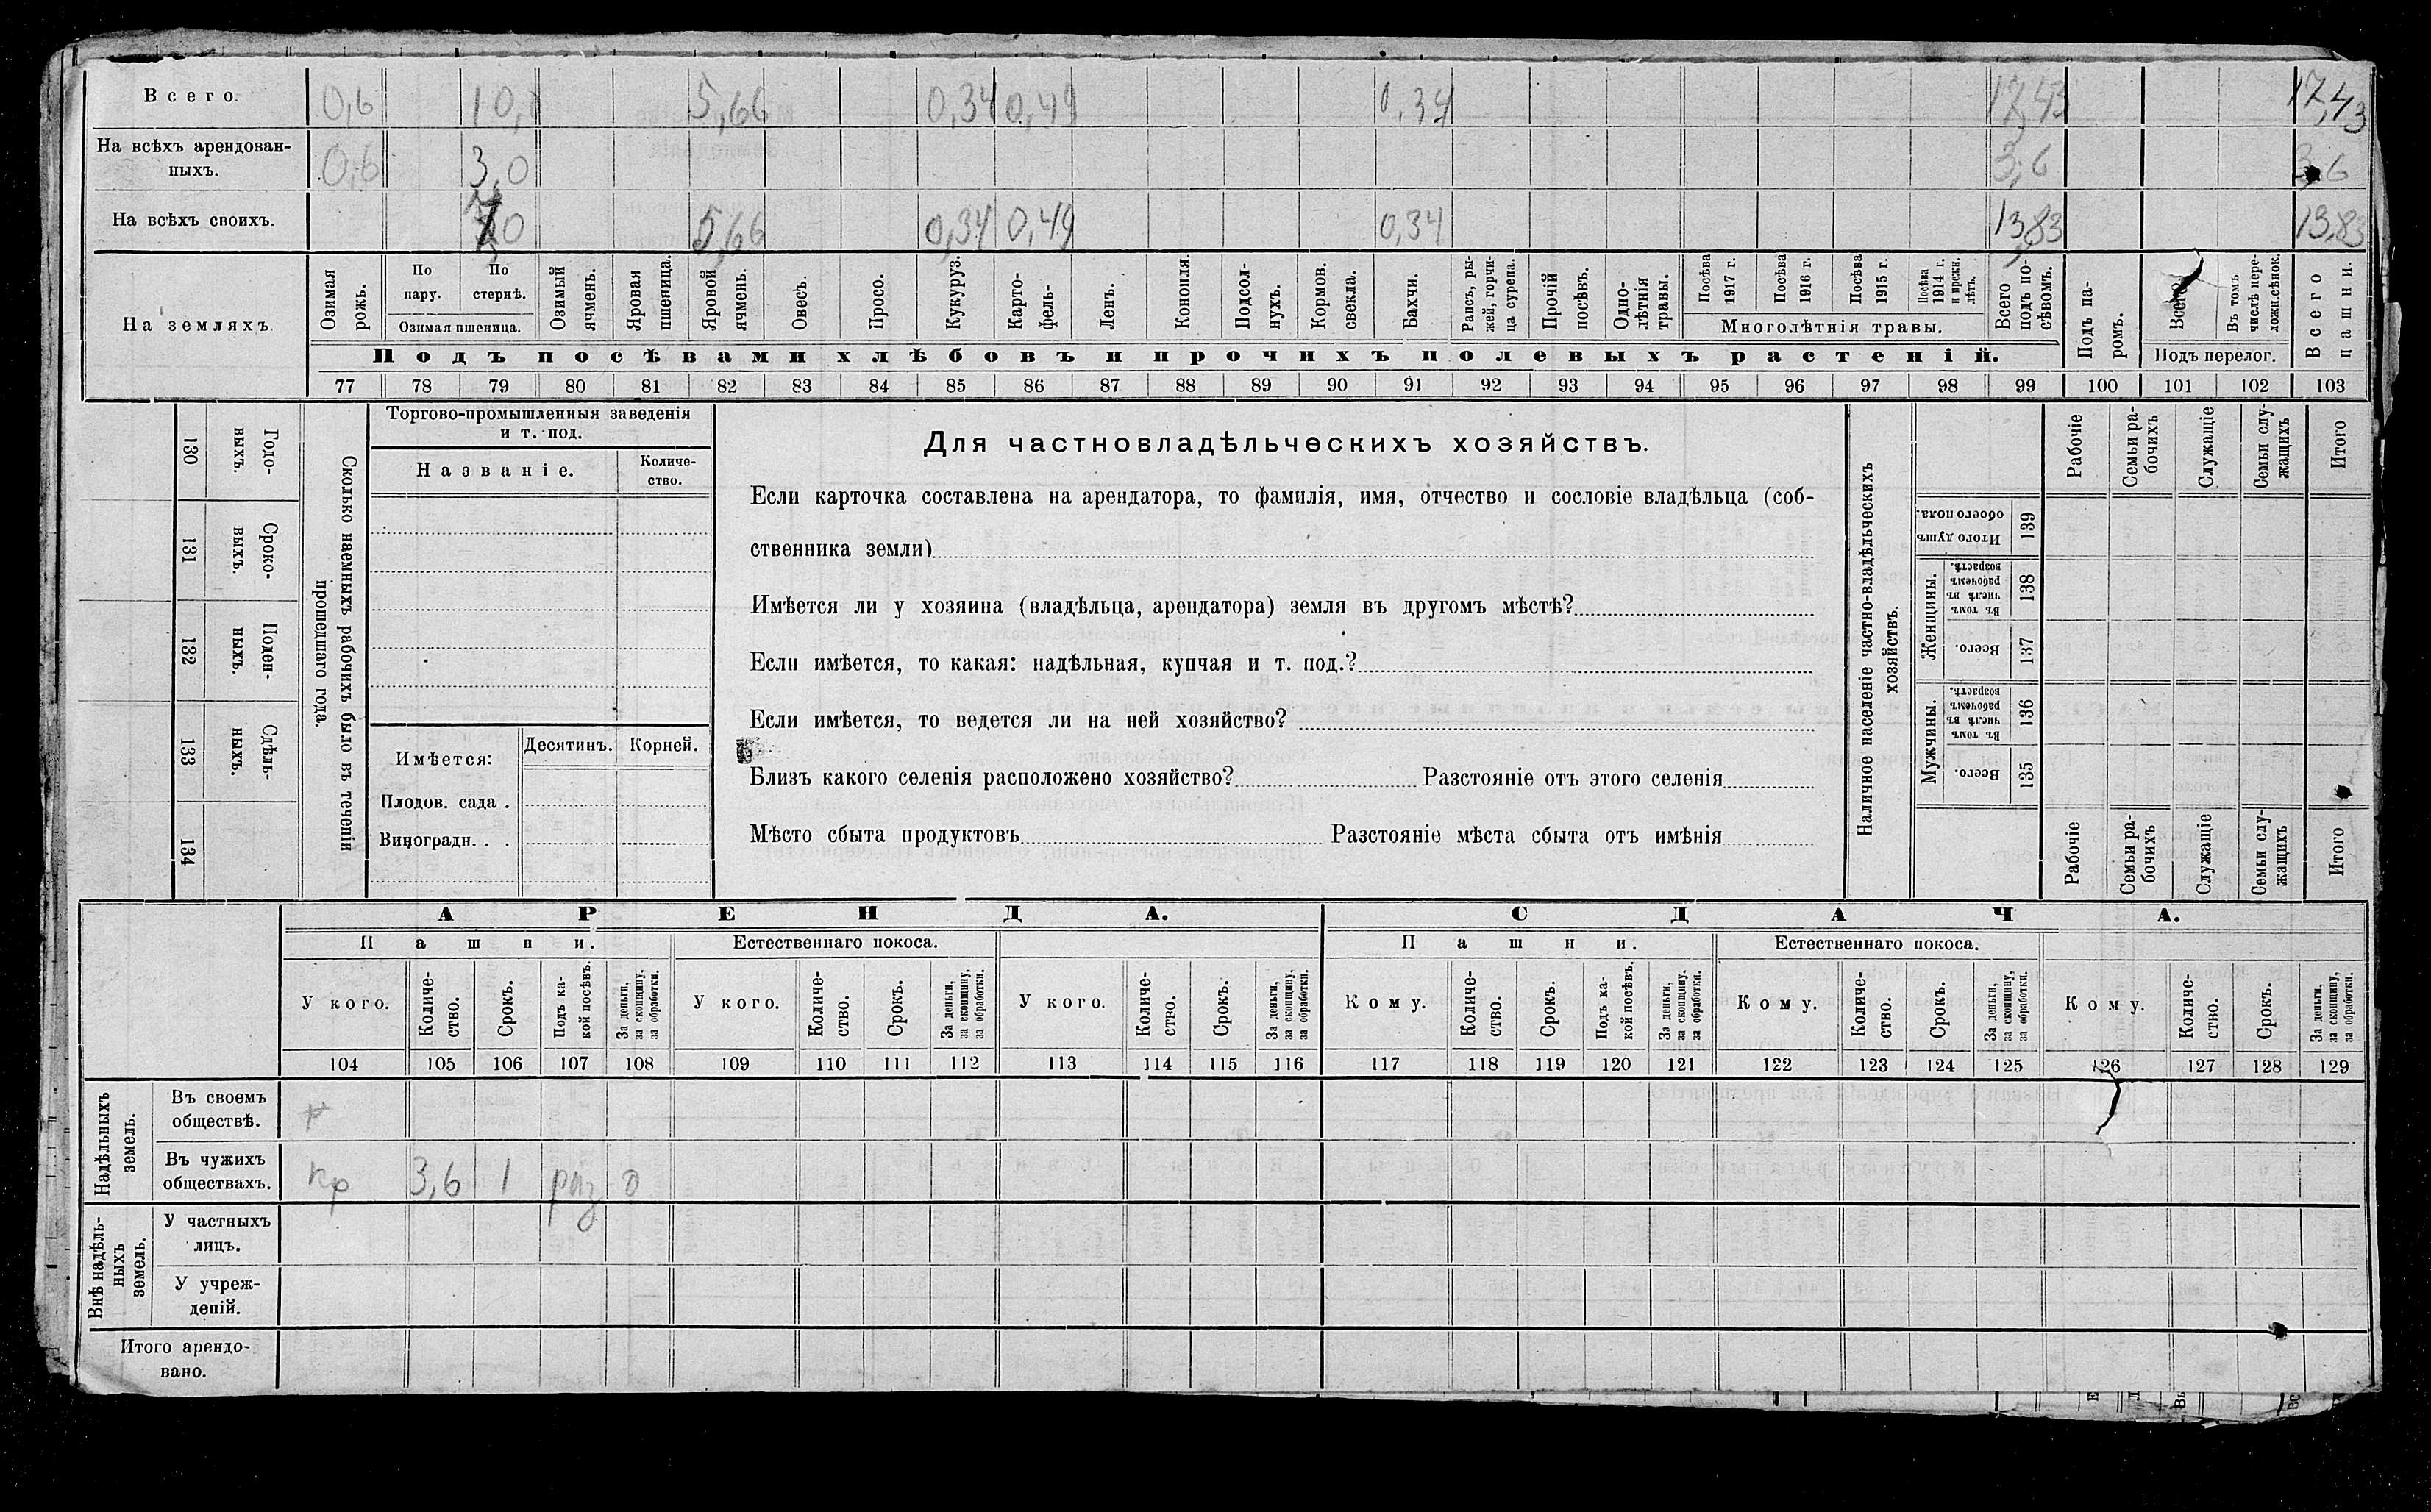 Всего. 0,6 10, 5,66 0,34 0,49 0,34 17,43 17,43
На всѣхъ арендован-
ныхъ. 0,6 3,0 3,6 3,6
На всѣхъ своихъ. 5,66 0,34 0,49 0,34 13,83 13,83
На земляхъ.
Озимая рожь.
По пару.
По стернѣ.
Озимая пшеница.
Озимый ячмень.
Яровая пшеница.
Яровой ячмень.
Овесъ.
Просо.
Кукуруз.
Карто-
фель-
Ленъ.
Конопля.
Подсол-
нухъ.
Кормов.
свекла.
Бахчи.
Рапсъ, ры-
жей, горчи-
ца сурепа.
Прочій
посѣвъ.
Одно-
лѣтнія
травы.
Посѣва
1917 г.
Посѣва
1916 г.
Посѣва
1915 г.
Посѣва
1914 г.
и прежн.
лѣтъ.
Многолѣтнія травы.
Всего
подъ по-
сѣвомъ.
Подъ па-
ромъ.
Всего
Въ томъ
числѣ пере-
ложн.сѣнок.
Подъ перелог.
Всего
пашни.
Подъ посѣвами хлѣбовъ и прочихъ полевыхъ растеній.
77 78 79 80 81 82 83 84 85 86 87 88 89 90 91 92 93 94 95 96 97 98 99 100 101 102 103
130 Годо-
выхъ.
131 Сроко-
выхъ.
132 Поден-
ныхъ.
133 Сдѣль-
ныхъ.
134
Сколько наемныхъ рабочихъ было въ теченіи
прошедшаго года.
Торгово-промышленныя заведенія
и т. под.
Названіе.
Количе-
ство.
Имѣется:
Десятинъ.
Корней.
Плодов. сада .
Виноградн. . .
Для частновладѣльческихъ хозяйствъ.
Если карточка составлена на арендатора, то фамилія, имя, отчество и сословіе владѣльца (соб-
ственника земли)
Имѣется ли у хозяина (владѣльца, арендатора) земля въ другомъ мѣстѣ?
Если имѣется, то какая: надѣльная, купчая и т. под.?
Если имѣется, то ведется ли на ней хозяйство?
Близъ какого селенія расположено хозяйство? Разстояніе отъ этого селенія
Мѣсто сбыта продуктовъ Разстояніе мѣста сбыта отъ имѣнія
Наличное населеніе частно-владѣльческихъ
хозяйствъ.
Рабочіе
Семьи ра-
бочихъ
Служащіе
Семьи слу-
жащихъ
Итого
Итого душъ
обоего пола.
139
Женщины.
Въ томъ
числѣ въ
рабочемъ
возрастѣ.
138
Всего.
137
Мужчины.
Въ томъ
числѣ въ
рабочемъ
возрастѣ.
136
Всего.
135
Рабочіе
Семьи ра-
бочихъ
Служащіе
Семьи слу-
жащих
Итого
АРЕНДА.
СДАЧА.
Пашни.
Естественнаго покоса.
Пашни.
Естественнаго покоса.
У кого.
Количе-
ство.
Срокъ.
Подъ ка-
кой посѣвъ.
За деньги,
за скопщину,
за обработки.
У кого.
Количе-
ство.
Срокъ.
За деньги,
за скопщину,
за обработки.
У кого.
Количе-
ство.
Срокъ.
За деньги,
за скопщину,
за обработки.
Кому.
Количе-
ство.
Срокъ.
Подъ ка-
кой посѣвъ.
За деньги,
за скопщину,
за обработки.
Кому.
Количе-
ство.
Срокъ.
За деньги,
за скопщину,
за обработки.
Кому.
Количе-
ство.
Срокъ.
За деньги,
за скопщину,
за обработки.
104 105 106 107 108 109 110 111 112 113 114 115 116 117 118 119 120 121 122 123 124 125 126 127 128 129
Надѣльныхъ
земель.
Въ своемъ
обществѣ.
Въ чужихъ
обществахъ. кр 3,6 1 раз о
Внѣ надѣль-
ныхъ
земель.
У частныхъ
лицъ.
У учреж-
деній.
Итого арендо-
вано.